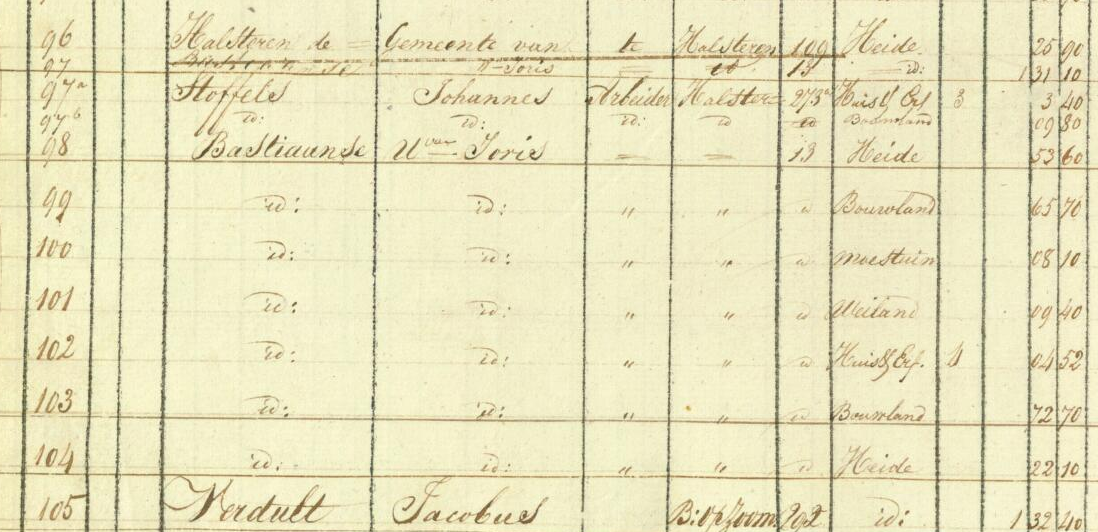 96 Halsteren de = Gemeente van te Halsteren 109 Heide 25 90
97 Bastiaanse Uvan Joris = id 13 id: 1 31 10
97a Stoffels Johannes Arbeider Halster= 273a Huis & Erf 3 3 40
97b id: id: id: id id Bouwland 09 80
98 Bastiaanse Uvan Joris = = 13 Heide 53 60
99 id: id: " " id Bouwland 65 70
100 id: id: " " id Moestuin 08 10
101 id: id: " " id Weiland 09 40
102 id: id: " " id Huis & Erf. 4 04 52
103 id: id: " " id Bouwland 72 70
104 id: id: " " id Heide 22 10
105 Verdult Jacobus B: op Zoom. 292 id: 1 32 40